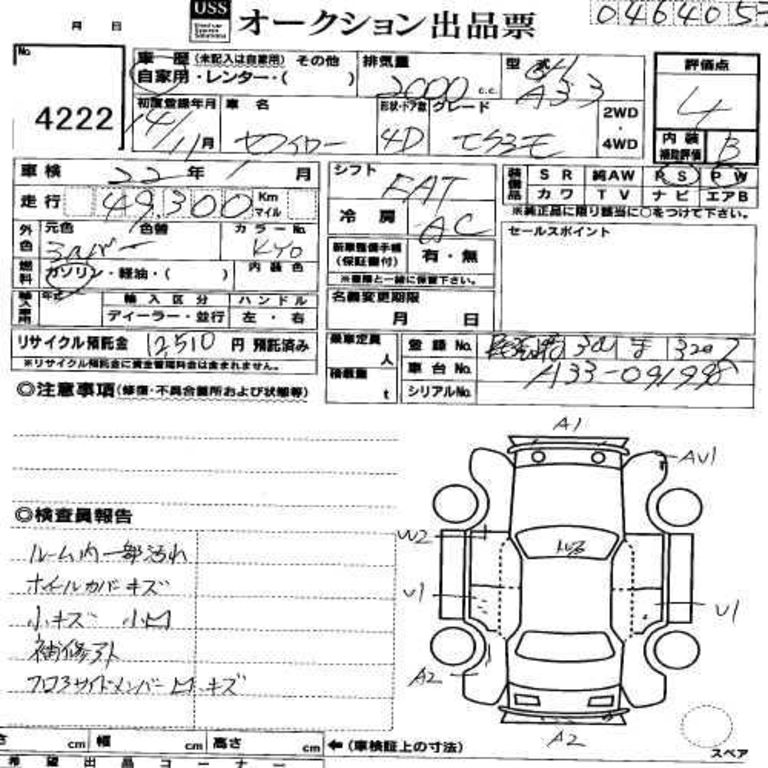 月 日 USS オークション出品票 046405
No. 4222
車歴 (未記入は自家用) その他
自家用・レンター・( )
排気量 2000 c.c.
型式 GH A33
評価点 4
内装補助評価 B
初度登録年月 14/11月
車名 セフィーロ
形状・ドア数 4D
グレード
2WD・4WD
車検 22年1月
走行 49,300 Km マイル
シフト FAT
冷房 AC
装備品 SR 純AW PS PW
カワ TV ナビ エアB
※純正品に限り該当に○をつけて下さい。
外色 元色 色替 カラーNo. KY0
燃料 ガソリン・軽油・( ) 内装色
新車整備手帳(保証書付) 有・無
※車両と一緒に保管下さい。
セールスポイント
輸入車用 年式 輸入区分 ハンドル
ディーラー・並行 左・右
名義変更期限 月 日
リサイクル預託金 12,510 円 預託済み
※リサイクル預託金に資金管理料金は含まれません。
乗車定員 人
積載量 t
登録No.
車台No. A33-091998
シリアルNo.
◎注意事項(修復・不具合箇所および状態等)
◎検査員報告
ルーム内一部汚れ
ホイールカバーキズ
小キズ 小凹
補修アト
フロアサイドメンバー凹、キズ
A1
AU1
W2
U1
U1
A2
A2
cm 幅 cm 高さ cm ←(車検証上の寸法)
スペア
希望出品コーナー